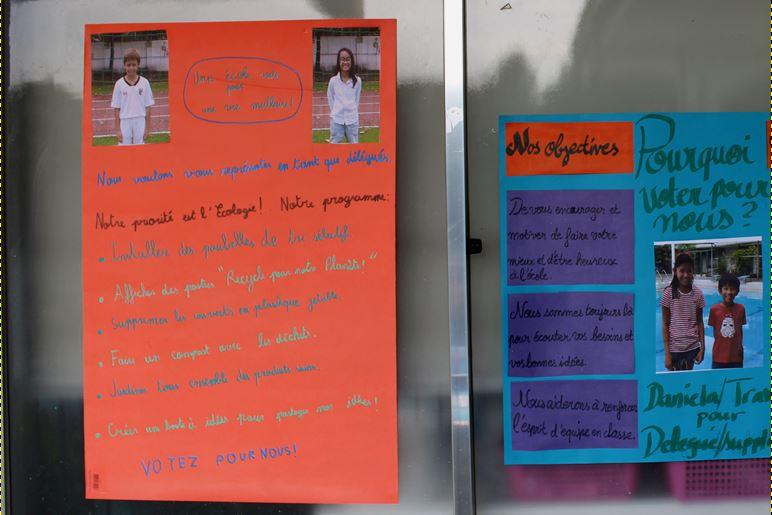 Une école verte
pour
une vie meilleure!
Nous voulons vous représenter en tant que délégués.
Notre priorité est l'Écologie! Notre programme:
• Installer des poubelles de tri sélectif.
• Afficher des posters "Recycle pour notre Planète!"
• Supprimer les couverts en plastique jetable.
• Faire un compost avec les déchets.
• Jardiner tous ensemble des produits sains.
• Créer une boîte à idées pour partager nos idées!
VOTEZ POUR NOUS!
Nos objectives
De vous encourager et
motiver de faire votre
mieux et d'être heureux
à l'école.
Nous sommes toujours là
pour écouter vos besoins et
vos bonnes idées.
Nous aiderons à renforcer
l'esprit d'équipe en classe.
Pourquoi
voter pour
nous?
Daniela/
pour
Délégué/